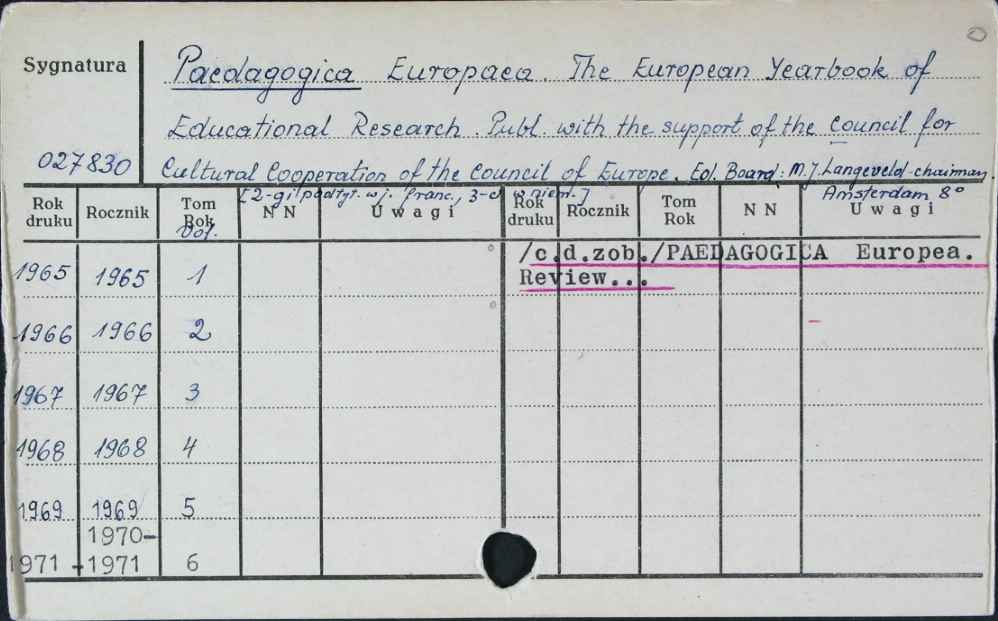 Sygnatura
Paedagogica Europaea. The European Yearbook of
Educational Research. Publ. with the support of the Council for
027830 Cultural Cooperation of the Council of Europe. Ed. Board: M.J. Langeveld-chairman.
[2-gi podtyt. w j. franc., 3-ci w niem.] Amsterdam 8°
Rok druku Rocznik Tom Rok Vol. N N Uwagi Rok druku Rocznik Tom Rok N N Uwagi
/c.d.zob./PAEDAGOGICA Europea.
1965 1965 1 Review...
1966 1966 2
1967 1967 3
1968 1968 4
1969 1969 5
1970-
1971 -1971 6